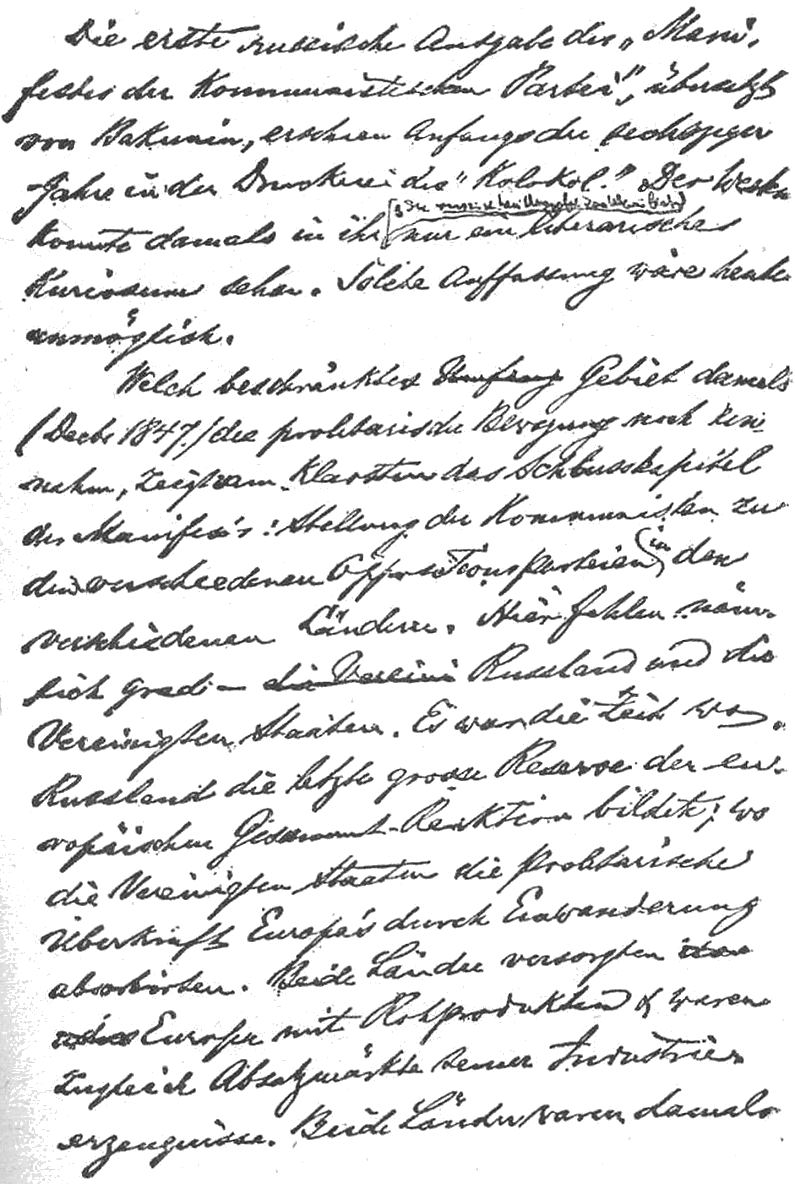 Die erste russische Ausgabe des „Mani-
festes der Kommunistischen Partei", übersetzt
von Bakunin, erschien Anfangs der sechsziger
Jahre in der Druckerei des "Kolokol." Der Westen
[d. der russischen Ausgabe
konnte damals in ihr nur ein literarisches
Kuriosum sehn. Solche Auffassung wäre heute
unmöglich.
Welch beschränktes Umfang Gebiet damals
(Decbr 1847) die proletarische Bewegung noch ein-
nahm, zeigt am Klarsten das Schlusskapitel
des Manifests: Stellung der Kommunisten zu
den verschiedenen Oppositionsparteien in den
verschiedenen Ländern. Hier fehlen näm-
lich grade – die Vereini Russland und die
Vereinigten Staaten. Es war die Zeit wo
Russland die letzte grosse Reserve der eu-
ropäischen Gesammt-Reaktion bildete; wo
die Vereinigten Staaten die proletarische
Überkraft Europa's durch Einwanderung
absorbirten. Beide Länder versorgten
Europa mit Rohprodukten & waren
zugleich Absatzmärkte seiner Industrie-
erzeugnisse. Beide Länder waren damals